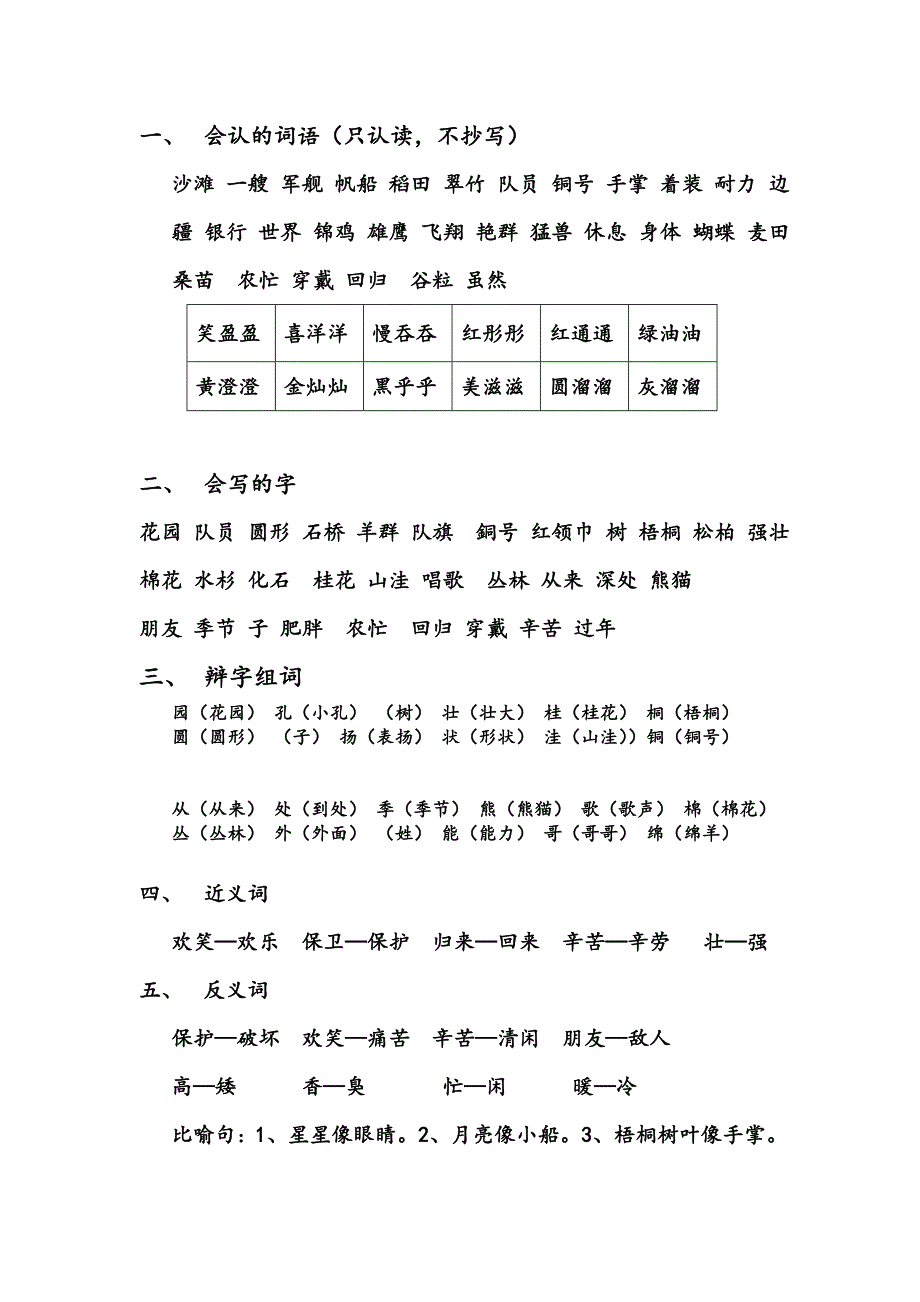 一、 会认的词语（只认读，不抄写）
沙滩 一艘 军舰 帆船 稻田 翠竹 队员 铜号 手掌 着装 耐力 边
疆 银行 世界 锦鸡 雄鹰 飞翔 艳群 猛兽 休息 身体 蝴蝶 麦田
桑苗 农忙 穿戴 回归 谷粒 虽然
笑盈盈 喜洋洋 慢吞吞 红彤彤 红通通 绿油油
黄澄澄 金灿灿 黑乎乎 美滋滋 圆溜溜 灰溜溜
二、 会写的字
花园 队员 圆形 石桥 羊群 队旗 銅号 红领巾 树 梧桐 松柏 强壮
棉花 水杉 化石 桂花 山洼 唱歌 丛林 从来 深处 熊猫
朋友 季节 子 肥胖 农忙 回归 穿戴 辛苦 过年
三、 辩字组词
园（花园） 孔（小孔） （树） 壮（壮大） 桂（桂花） 桐（梧桐）
圆（圆形） （子） 扬（表扬） 状（形状） 洼（山洼）） 铜（铜号）
从（从来） 处（到处） 季（季节） 熊（熊猫） 歌（歌声） 棉（棉花）
丛（丛林） 外（外面） （姓） 能（能力） 哥（哥哥） 绵（绵羊）
四、 近义词
欢笑—欢乐 保卫—保护 归来—回来 辛苦—辛劳 壮—强
五、 反义词
保护—破坏 欢笑—痛苦 辛苦—清闲 朋友—敌人
高—矮 香—臭 忙—闲 暖—冷
比喻句：1、星星像眼睛。2、月亮像小船。3、梧桐树叶像手掌。